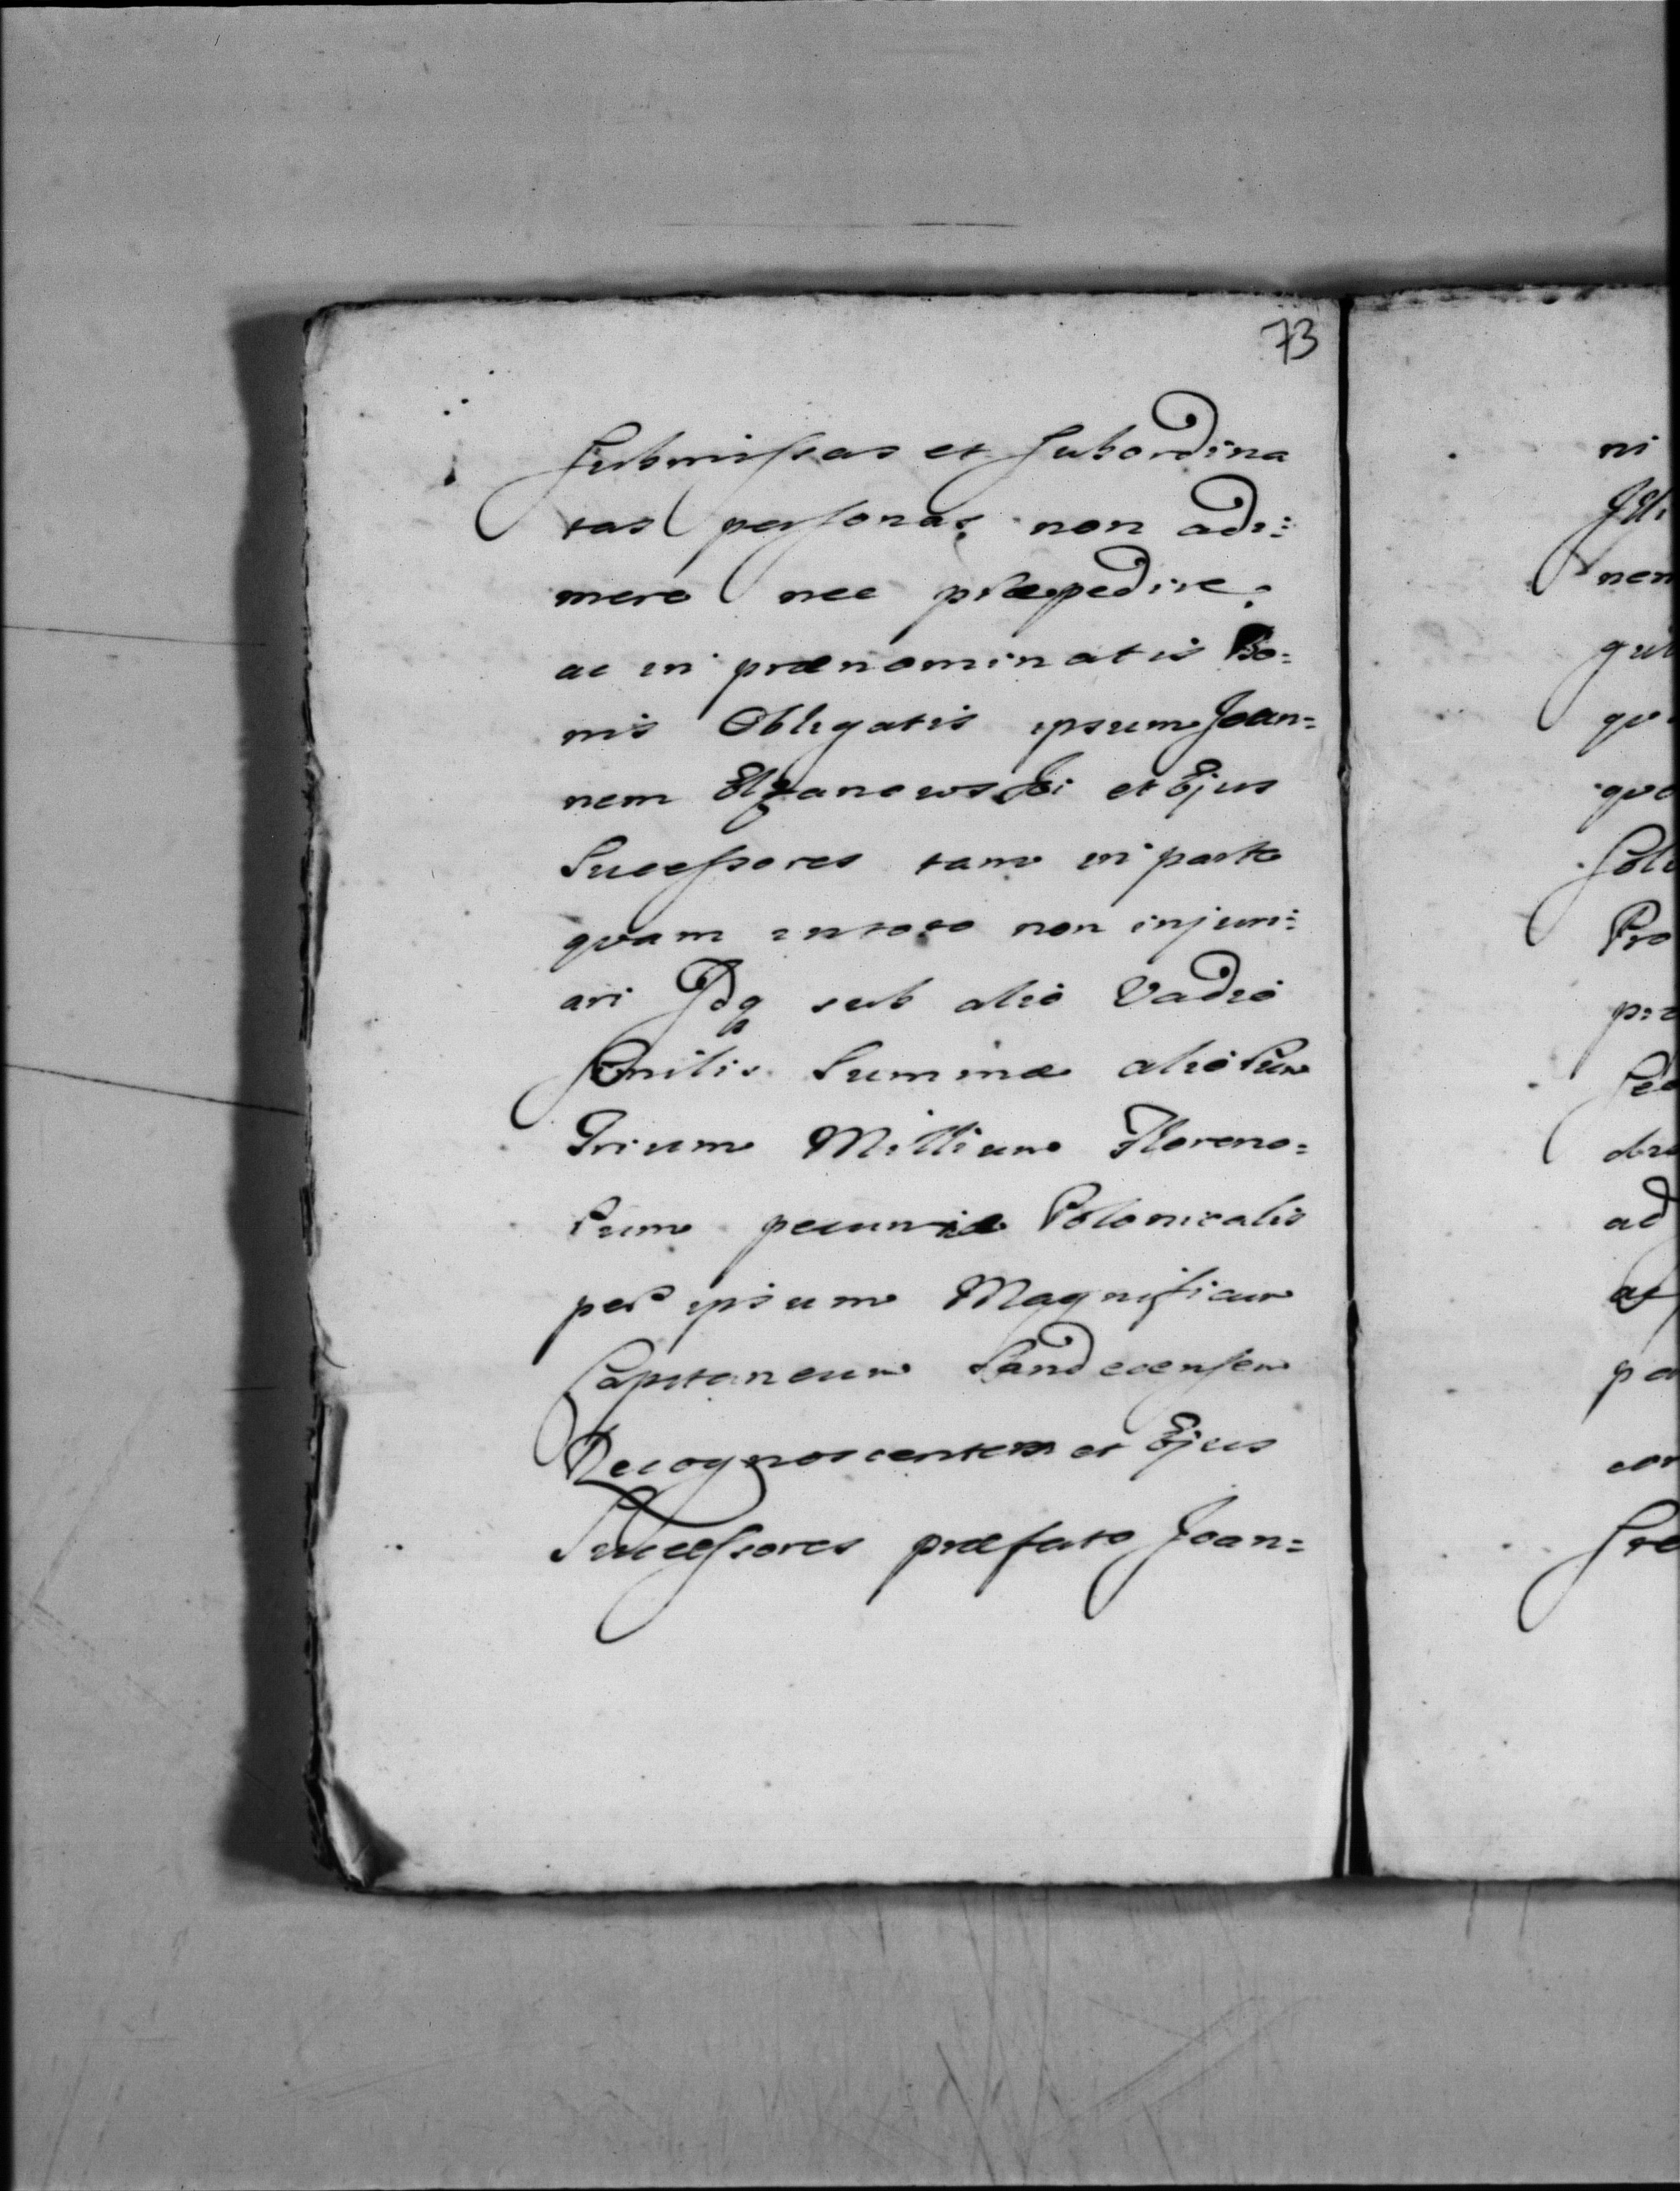 73
Submissas et Subordina
tas personas non adi:
mere nec præpedire.
ac in prænominatis Bo:
nis Obligatis ipsum Joan:
nem Elzanowski et Ejus
Successores tam in parte
quam in toto non injuri:
ari Idq sub alio Vadio
Similis Summæ aliorum
Trium Millium Floreno:
rum pecuniæ Polonicalis
per ipsum Magnificum
Capitaneum Sandecensem
Recognoscentem et Ejus
Successores præfato Joan:
ni
nem
ad